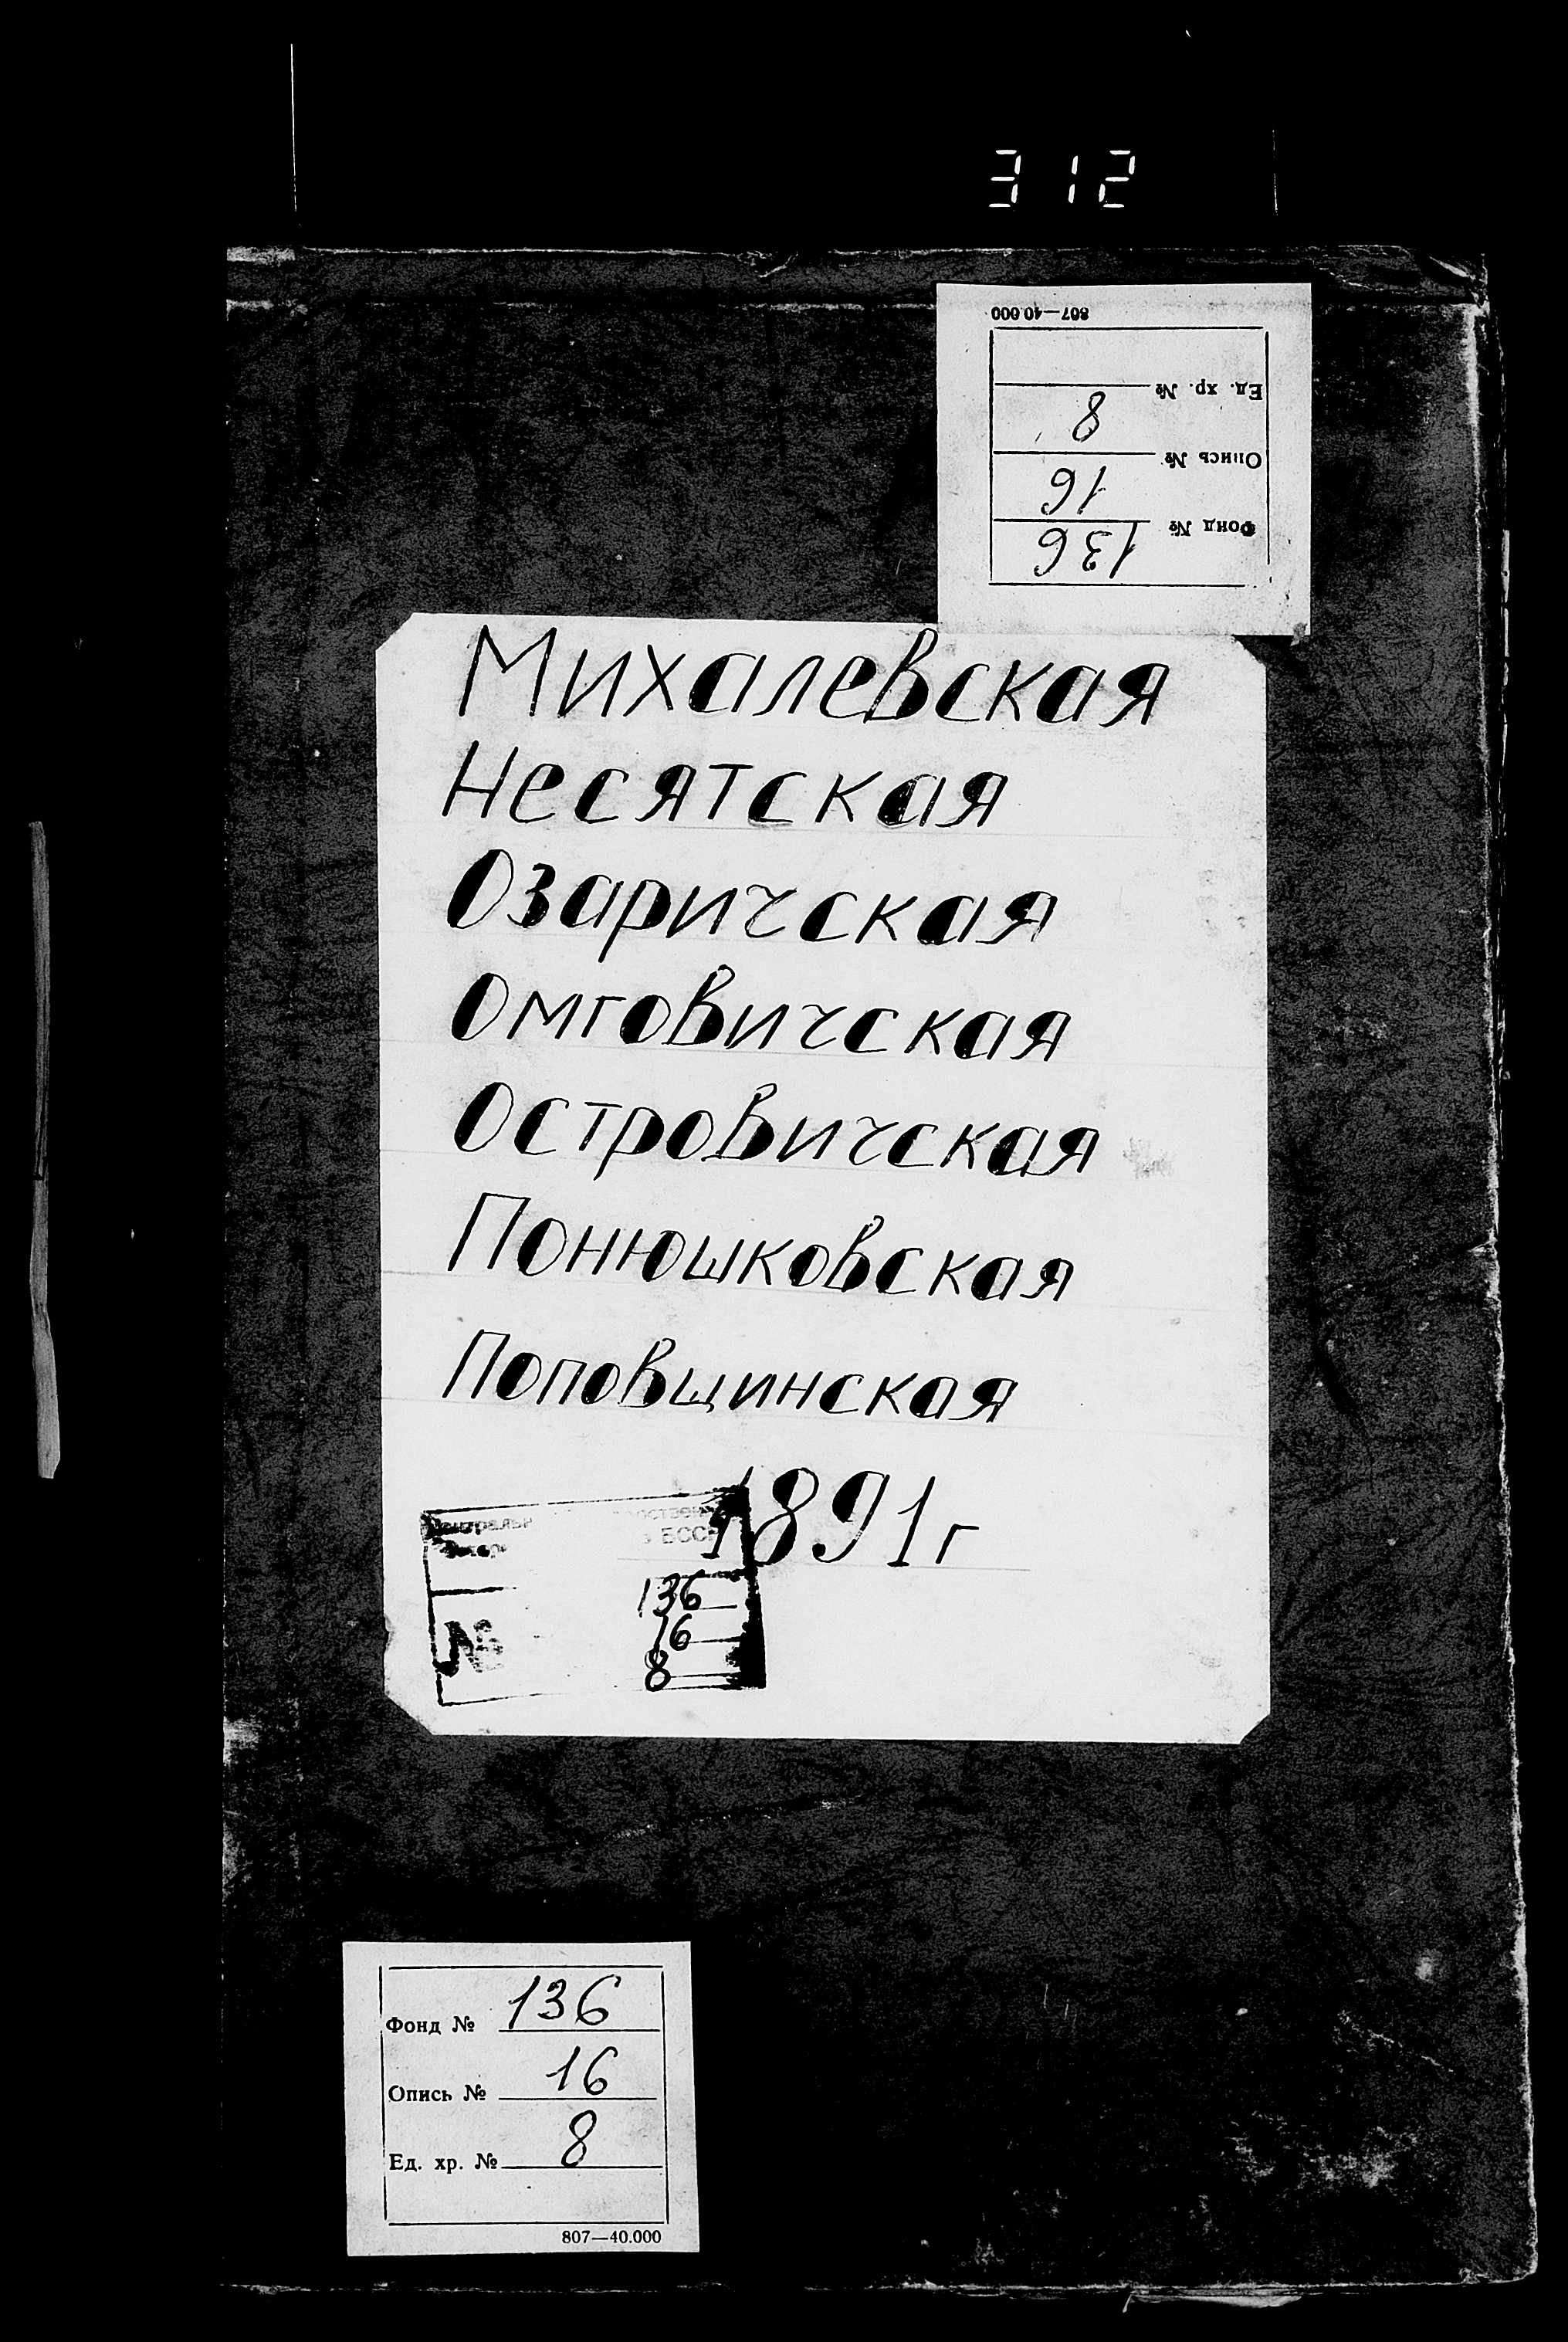 312
807—40.000
Ед. хр. №
8
Опись № 16
Фонд № 136
Михалевская
Несятская
Озаричская
Омговичская
Островичская
Понюшковская
Поповщинская
1891 г
БССР
136
16
№
8
Фонд № 136
Опись № 16
Ед. хр. № 8
807—40.000